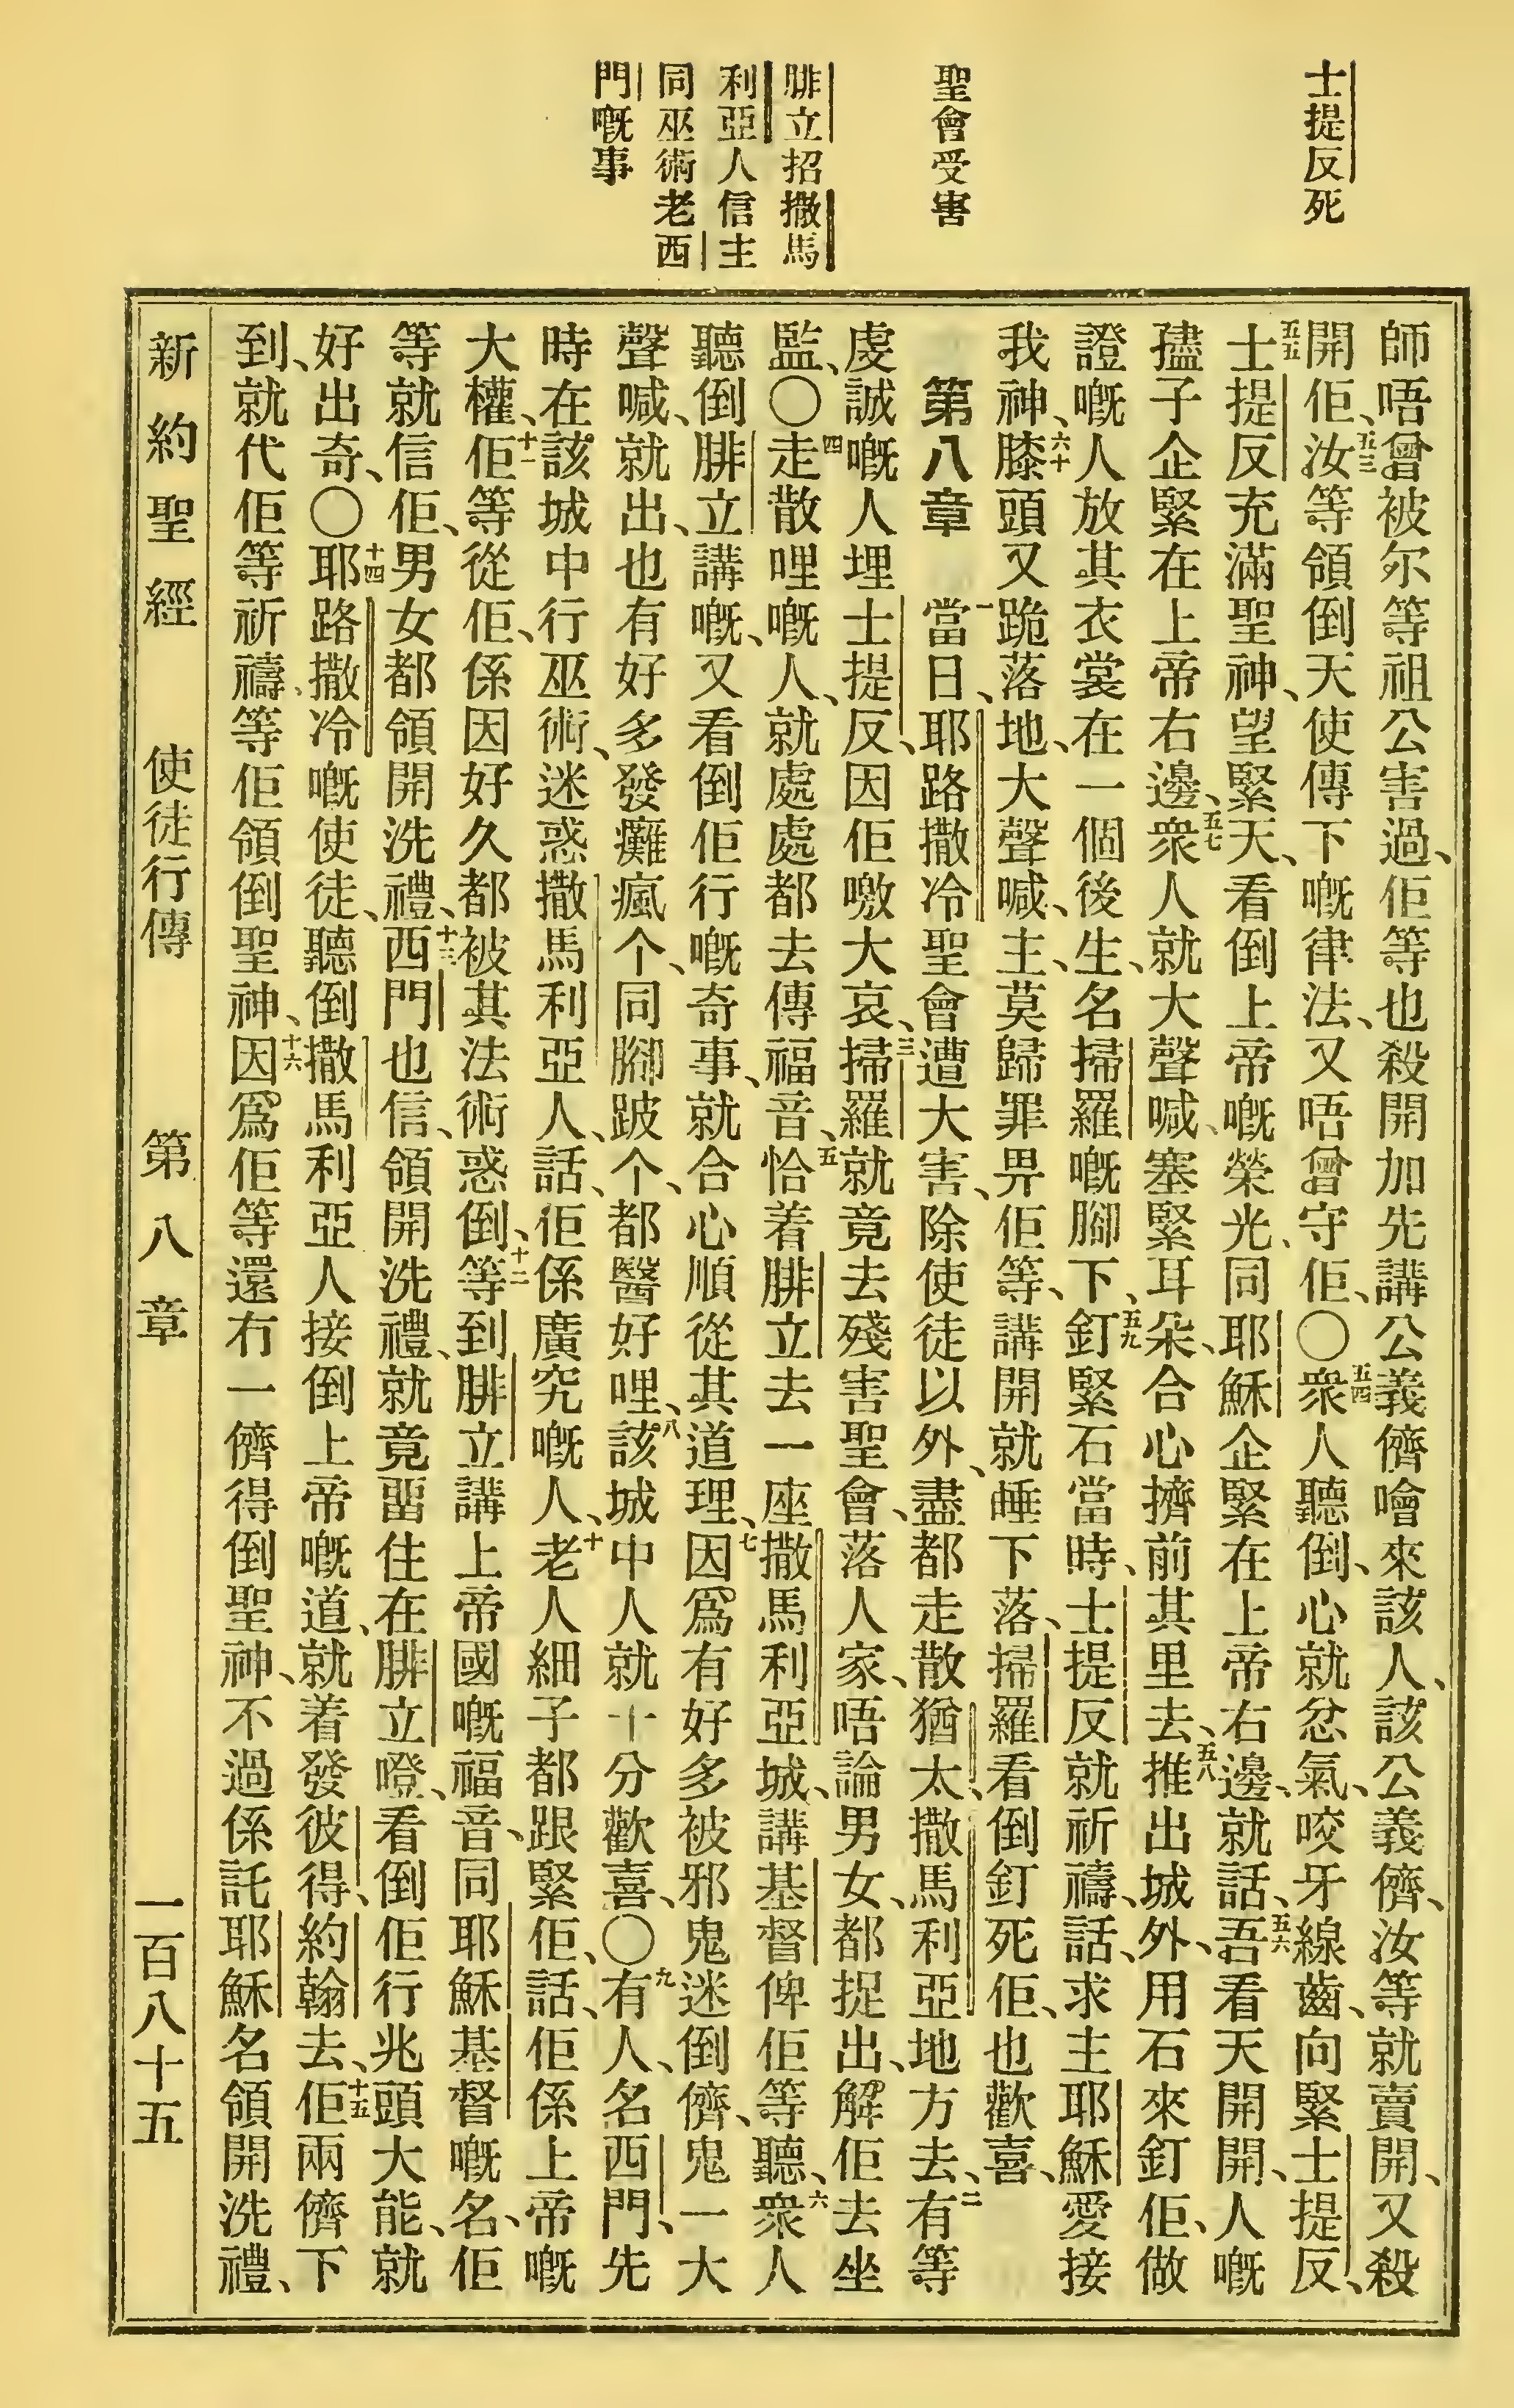 士提反死
聖會受害
腓立招撒馬
利亞人信主
同巫術老西
門嘅事
師唔曾被尔等祖公害過、佢等也殺開加先講公義儕噲來該人、該公義儕、汝等就賣開、又殺
開佢、五三汝等領倒天使傳下嘅律法、又唔曾守佢、〇五四衆人聽倒、心就忿氣、咬牙線齒、向緊士提反、
五五士提反充滿聖神、望緊天、看倒上帝嘅榮光、同耶穌企緊在上帝右邊、就話、五六吾看天開開、人嘅
孻子企緊在上帝右邊、五七衆人就大聲喊、塞緊耳朵、合心擠前其里去、五八推出城外、用石來釘佢、做
證嘅人放其衣裳在一個後生、名掃羅嘅腳下、五九釘緊石當時、士提反就祈禱、話、求主耶穌愛接
我神、六十膝頭又跪落地、大聲喊、主、莫歸罪畀佢等、講開就睡下落、掃羅看倒釘死佢、也歡喜、
第八章 一當日、耶路撒冷聖會遭大害、除使徒以外、盡都走散猶太、撒馬利亞地方去、二有等
虔誠嘅人埋士提反、因佢噭大哀、三掃羅就竟去殘害聖會、落人家、唔論男女、都捉出、解佢去坐
監、〇四走散哩嘅人、就處處都去傳福音、五恰着腓立去一座撒馬利亞城、講基督俾佢等聽、六衆人
聽倒腓立講嘅、又看倒佢行嘅奇事、就合心順從其道理、七因爲有好多被邪鬼迷倒儕、鬼一大
聲喊、就出、也有好多發癱瘋个、同腳跛个、都醫好哩、八該城中人就十分歡喜、〇九有人、名西門、先
時在該城中行巫術、迷惑撒馬利亞人、話、佢係廣究嘅人、十老人細子都跟緊佢、話、佢係上帝嘅
大權、十一佢等從佢、係因好久都被其法術惑倒、十二等到腓立講上帝國嘅福音、同耶穌基督嘅名、佢
等就信佢、男女都領開洗禮、十三西門也信、領開洗禮、就竟畱住在腓立嶝、看倒佢行兆頭大能、就
好出奇、〇十四耶路撒冷嘅使徒、聽倒撒馬利亞人接倒上帝嘅道、就着發彼得、約翰去、十五佢兩儕下
到、就代佢等祈禱、等佢領倒聖神、十六因爲佢等還冇一儕得倒聖神、不過係託耶穌名領開洗禮、
新約聖經 使徒行傳 第八章 一百八十五